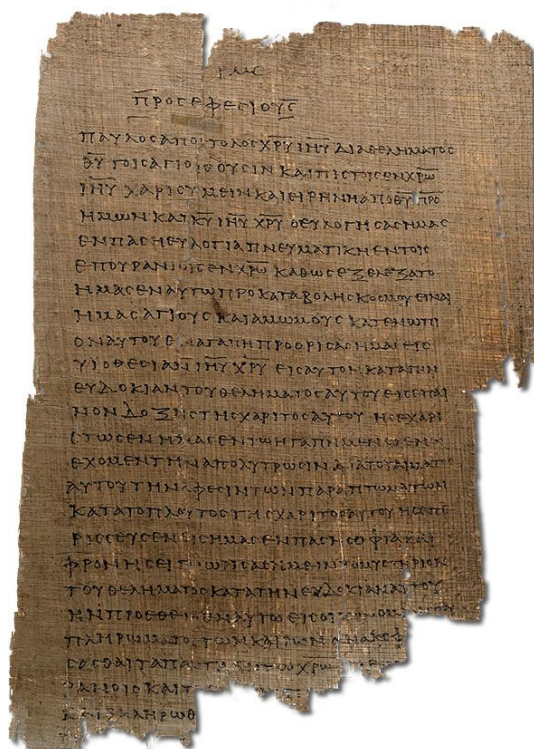 ΡΜϚ
ΠΡΟϹΕΦΕϹΙΟΥϹ
ΠΑΥΛΟϹΑΠΟϹΤΟΛΟϹΧ̅Ρ̅Υ̅ Ι̅Η̅Υ̅ ΔΙΑΘΕΛΗΜΑΤΟϹ
Θ̅Υ̅ ΤΟΙϹΑΓΙΟΙϹΟΥϹΙΝ ΚΑΙΠΙϹΤΟΙϹΕΝΧ̅Ρ̅Ω̅
Ι̅Η̅Υ̅ ΧΑΡΙϹΥΜΕΙΝ ΚΑΙΕΙΡΗΝΗΑΠΟΘ̅Υ̅ Π̅Ρ̅Ο̅
ΗΜΩΝ ΚΑΙΚ̅Υ̅ Ι̅Η̅Υ̅ Χ̅Ρ̅Υ̅ ΟΕΥΛΟΓΗϹΑϹΗΜΑϹ
ΕΝΠΑϹΗΕΥΛΟΓΙΑΠΝΕΥΜΑΤΙΚΗΕΝΤΟΙϹ
ΕΠΟΥΡΑΝΙΟΙϹΕΝΧ̅Ρ̅Ω̅ ΚΑΘΩϹΕΞΕΛΕΞΑΤΟ
ΗΜΑϹΕΝΑΥΤΩΠΡΟΚΑΤΑΒΟΛΗϹΚΟϹΜΟΥΕΙΝΑΙ
ΗΜΑϹΑΓΙΟΥϹΚΑΙΑΜΩΜΟΥϹΚΑΤΕΝΩΠΙ
ΟΝΑΥΤΟΥΕΝΑΓΑΠΗΠΡΟΟΡΙϹΑϹΗΜΑϹΕΙϹ
ΥΙΟΘΕϹΙΑΝΙ̅Η̅Υ̅ Χ̅Ρ̅Υ̅ ΕΙϹΑΥΤΟΝΚΑΤΑΤΗΝ
ΕΥΔΟΚΙΑΝΤΟΥΘΕΛΗΜΑΤΟϹΑΥΤΟΥΕΙϹΕΠΑΙ
ΝΟΝΔΟΞΗϹΤΗϹΧΑΡΙΤΟϹΑΥΤΟΥΗϹΕΧΑΡΙ
ΤΩϹΕΝΗΜΑϹΕΝΤΩΗΓΑΠΗΜΕΝΩΕΝΩ
ΕΧΟΜΕΝΤΗΝΑΠΟΛΥΤΡΩϹΙΝΔΙΑΤΟΥΑΙΜΑΤΟϹ
ΑΥΤΟΥΤΗΝΑΦΕϹΙΝΤΩΝΠΑΡΑΠΤΩΜΑΤΩΝ
ΚΑΤΑΤΟΠΛΟΥΤΟϹΤΗϹΧΑΡΙΤΟϹΑΥΤΟΥΗϹΕΠΕ
ΡΙϹϹΕΥϹΕΝΕΙϹΗΜΑϹΕΝΠΑϹΗϹΟΦΙΑΚΑΙ
ΦΡΟΝΗϹΕΙΓΝΩΡΙϹΑϹΗΜΕΙΝΤΟΜΥϹΤΗΡΙΟΝ
ΤΟΥΘΕΛΗΜΑΤΟϹΚΑΤΑΤΗΝΕΥΔΟΚΙΑΝΑΥΤΟΥ
ΗΝΠΡΟΕΘΕΤΟΕΝΑΥΤΩΕΙϹΟΙΚΟΝΟΜΙΑΝΤΟΥ
ΠΛΗΡΩΜΑΤΟϹΤΩΝΚΑΙΡΩΝΑΝΑΚΕΦ
ΩϹΑϹΘΑΙΤΑΠΑΝΤΑΕΝΤΩΧ̅Ρ̅Ω̅
ΡΑΝΟΙϹΚΑΙΤ
ΚΑΙΕΚΛΗΡΩΘ